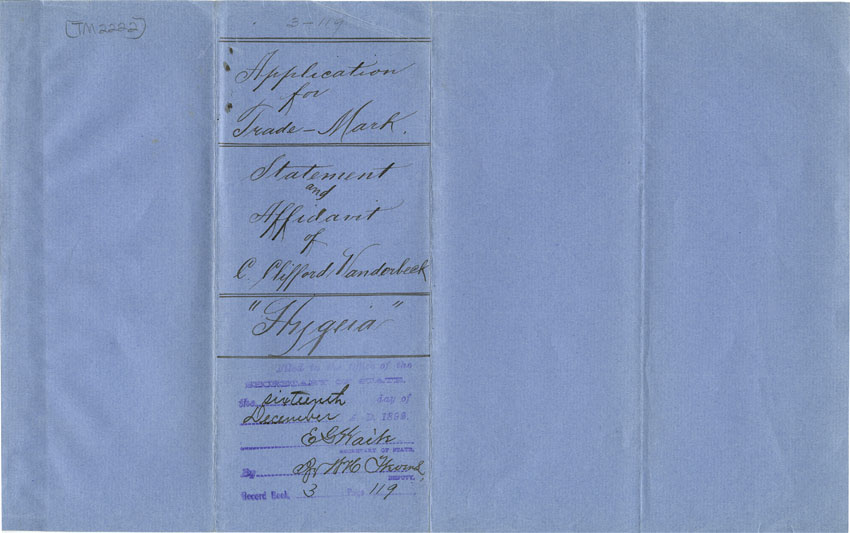 (TM2222)
3-119
Application
for
Trade-Mark.
Statement
and
Affidavit
of
C. Clifford Vanderbeck
"Hygeia"
Filed in the office of the
SECRETARY OF STATE.
the sixteenth day of
December A.D. 1899.
E G Waite
SECRETARY OF STATE.
By
DEPUTY.
Record Book, 3 Page 119